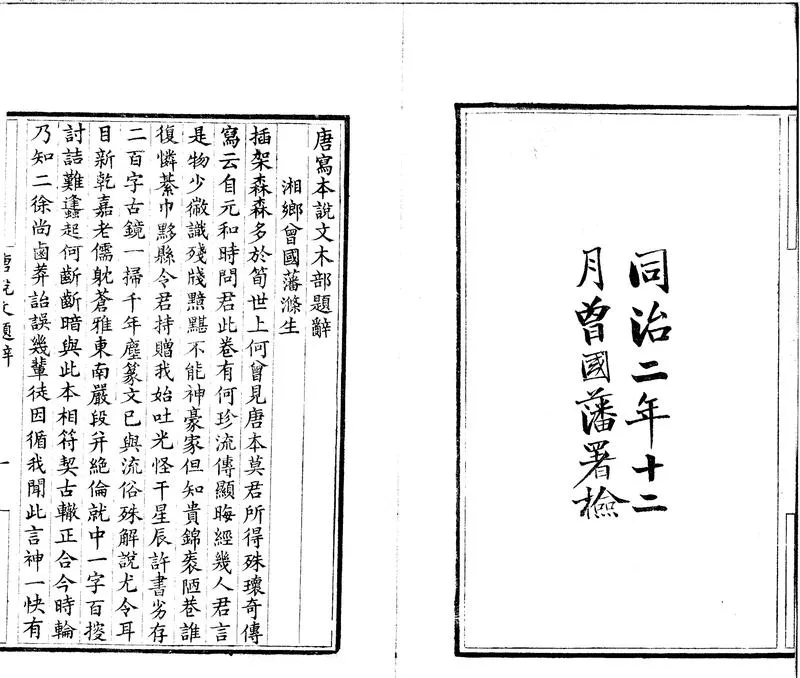 同治二年十二
月曾國藩署檢
唐寫本說文木部題辭
湘鄉曾國藩滌生
插架森森多於筍世上何曾見唐本莫君所得殊瓌奇傳
寫云自元和時問君此卷有何珍流傳顯晦經幾人君言
是物少微識殘牋黯黮不能神豪家但知貴錦袠陋巷誰
復憐綦巾黟縣令君持贈我始吐光怪干星辰許書劣存
二百字古鏡一掃千年塵篆文已與流俗殊解說尤令耳
目新乾嘉老儒躭蒼雅東南嚴段并絕倫就中一字百搜
討詰難蠭起何齗齗暗與此本相符契古轍正合今時輪
乃知二徐尚鹵莽詒誤幾輩徒因循我聞此言神一快有
唐說文題辭
一